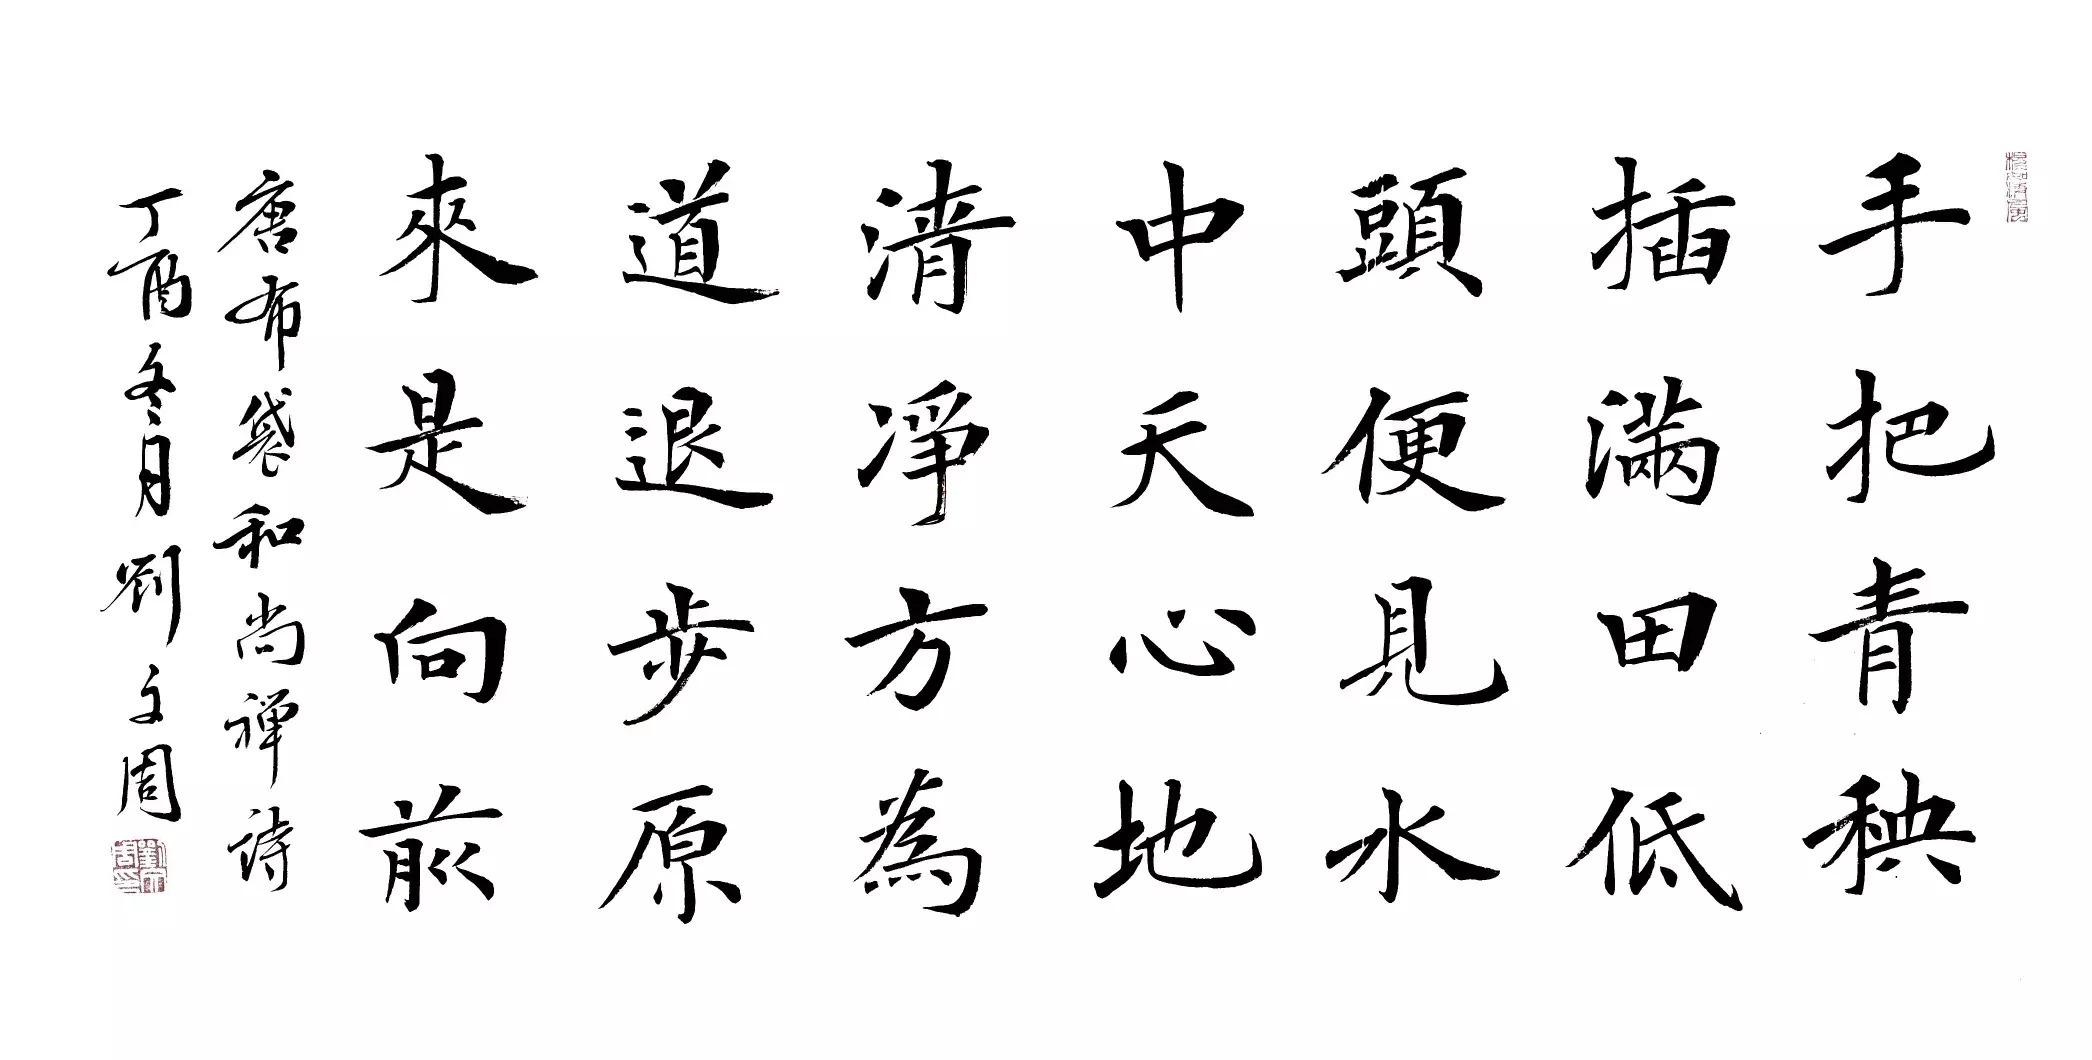 手把青秧
插滿田低
頭便見水
中天心地
清淨方為
道退步原
來是向前
唐布袋和尚禅詩
丁酉冬月劉文周